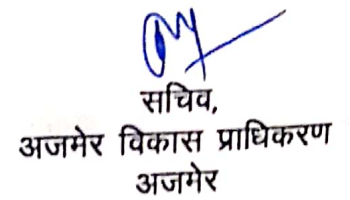 सचिव,
अजमेर विकास प्राधिकरण
अजमेर